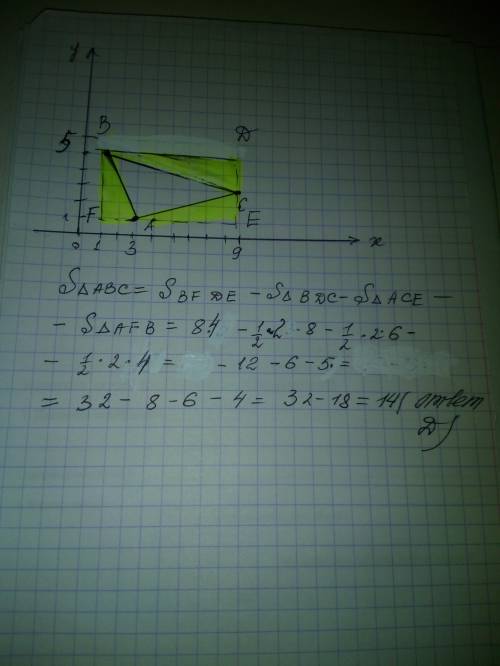 y
B
5 D
C
1 F A E
0 1 3 9 x
S△ABC = S BFDE - S△BDC - S△ACE -
- S△AFB = 84 - 1/2 · 2 · 8 - 1/2 · 2 · 6 -
- 1/2 · 2 · 4 = - 12 - 6 - 5 · =
= 32 - 8 - 6 - 4 = 32 - 18 = 14 (ответ
D)